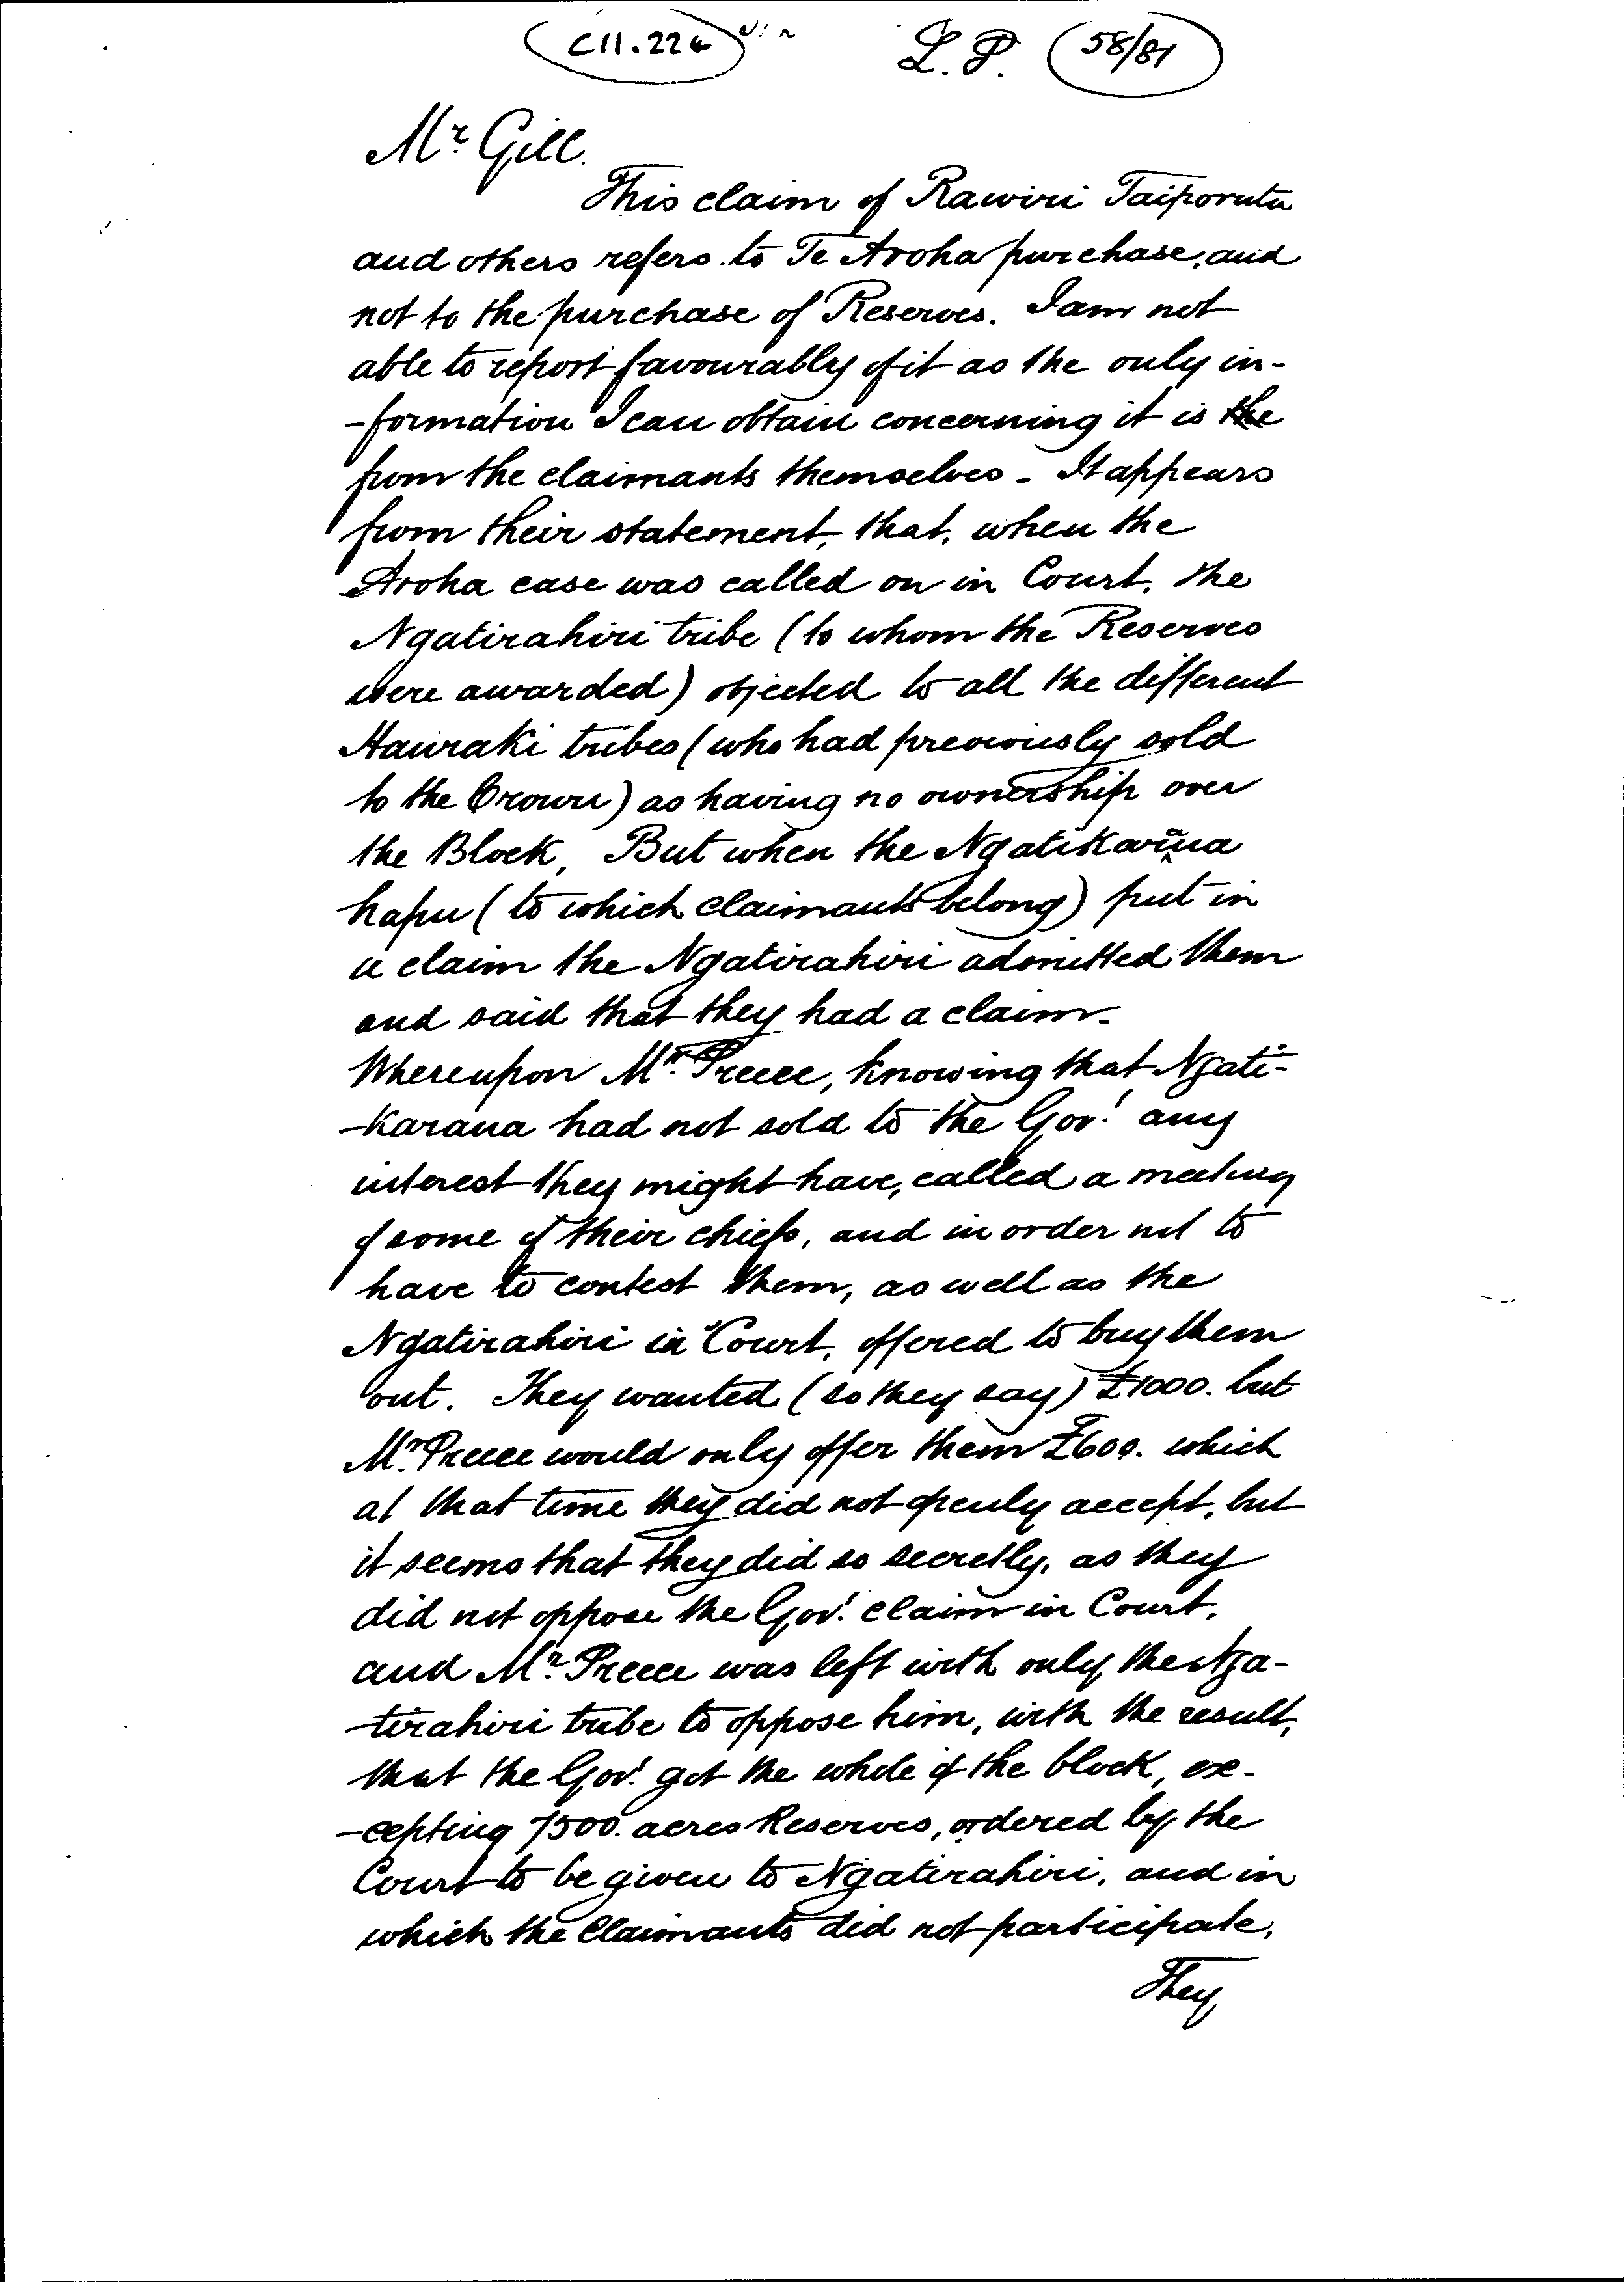 C11.22
L. P. 58/81
Mr. Gill.
This claim of Rawiri Taiporutu
and others refers to Te Aroha purchase, and
not to the purchase of Reserves. I am not
able to report favourably of it as the only in-
-formation I can obtain concerning it is the
from the claimants themselves - It appears
from their statement, that, when the
Aroha case was called on in Court, the
Ngatirahiri tribe (to whom the Reserves
were awarded) objected to all the different
Hauraki tribes (who had previously sold
to the Crown) as having no ownership over
the Block, But when the Ngatikaraua
hapu (to which claimants belong) put in
a claim the Ngatirahiri admitted them
and said that they had a claim.
Whereupon Mr. Preece, knowing that Ngati-
-karaua had not sold to the Govt. any
interest they might have, called a meeting
of some of their chiefs, and in order not to
have to contest them, as well as the
Ngatirahiri in Court, offered to buy them
out. They wanted (so they say) £1000. but
Mr. Preece would only offer them £600. which
at that time they did not openly accept, but
it seems that they did so secretly, as they
did not oppose the Govt. claim in Court,
and Mr. Preece was left with only the Nga-
-tirahiri tribe to oppose him, with the result,
that the Govt. got the whole of the block, ex-
-cepting 7500. acres Reserves, ordered by the
Court to be given to Ngatirahiri, and in
which the Claimants did not participate.
They